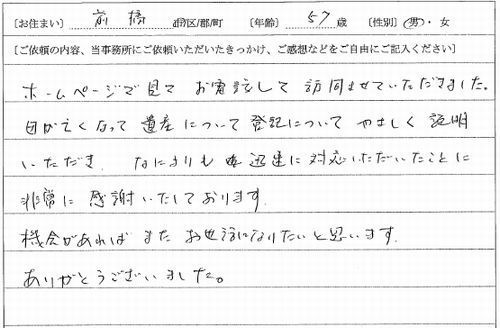 〔お住まい〕 前橋 市/区/郡/町 〔年齢〕 57 歳 〔性別〕 男・女
〔ご依頼の内容、当事務所にご依頼いただいたきっかけ、ご感想などをご自由にご記入ください〕
ホームページで見て お電話して 訪問させていただきました。
母が亡くなって 遺産について 登記について やさしく 説明
いただき、なによりも 迅速に 対応いただいたことに
非常に 感謝いたしております。
機会があれば また お世話になりたいと思います。
ありがとうございました。